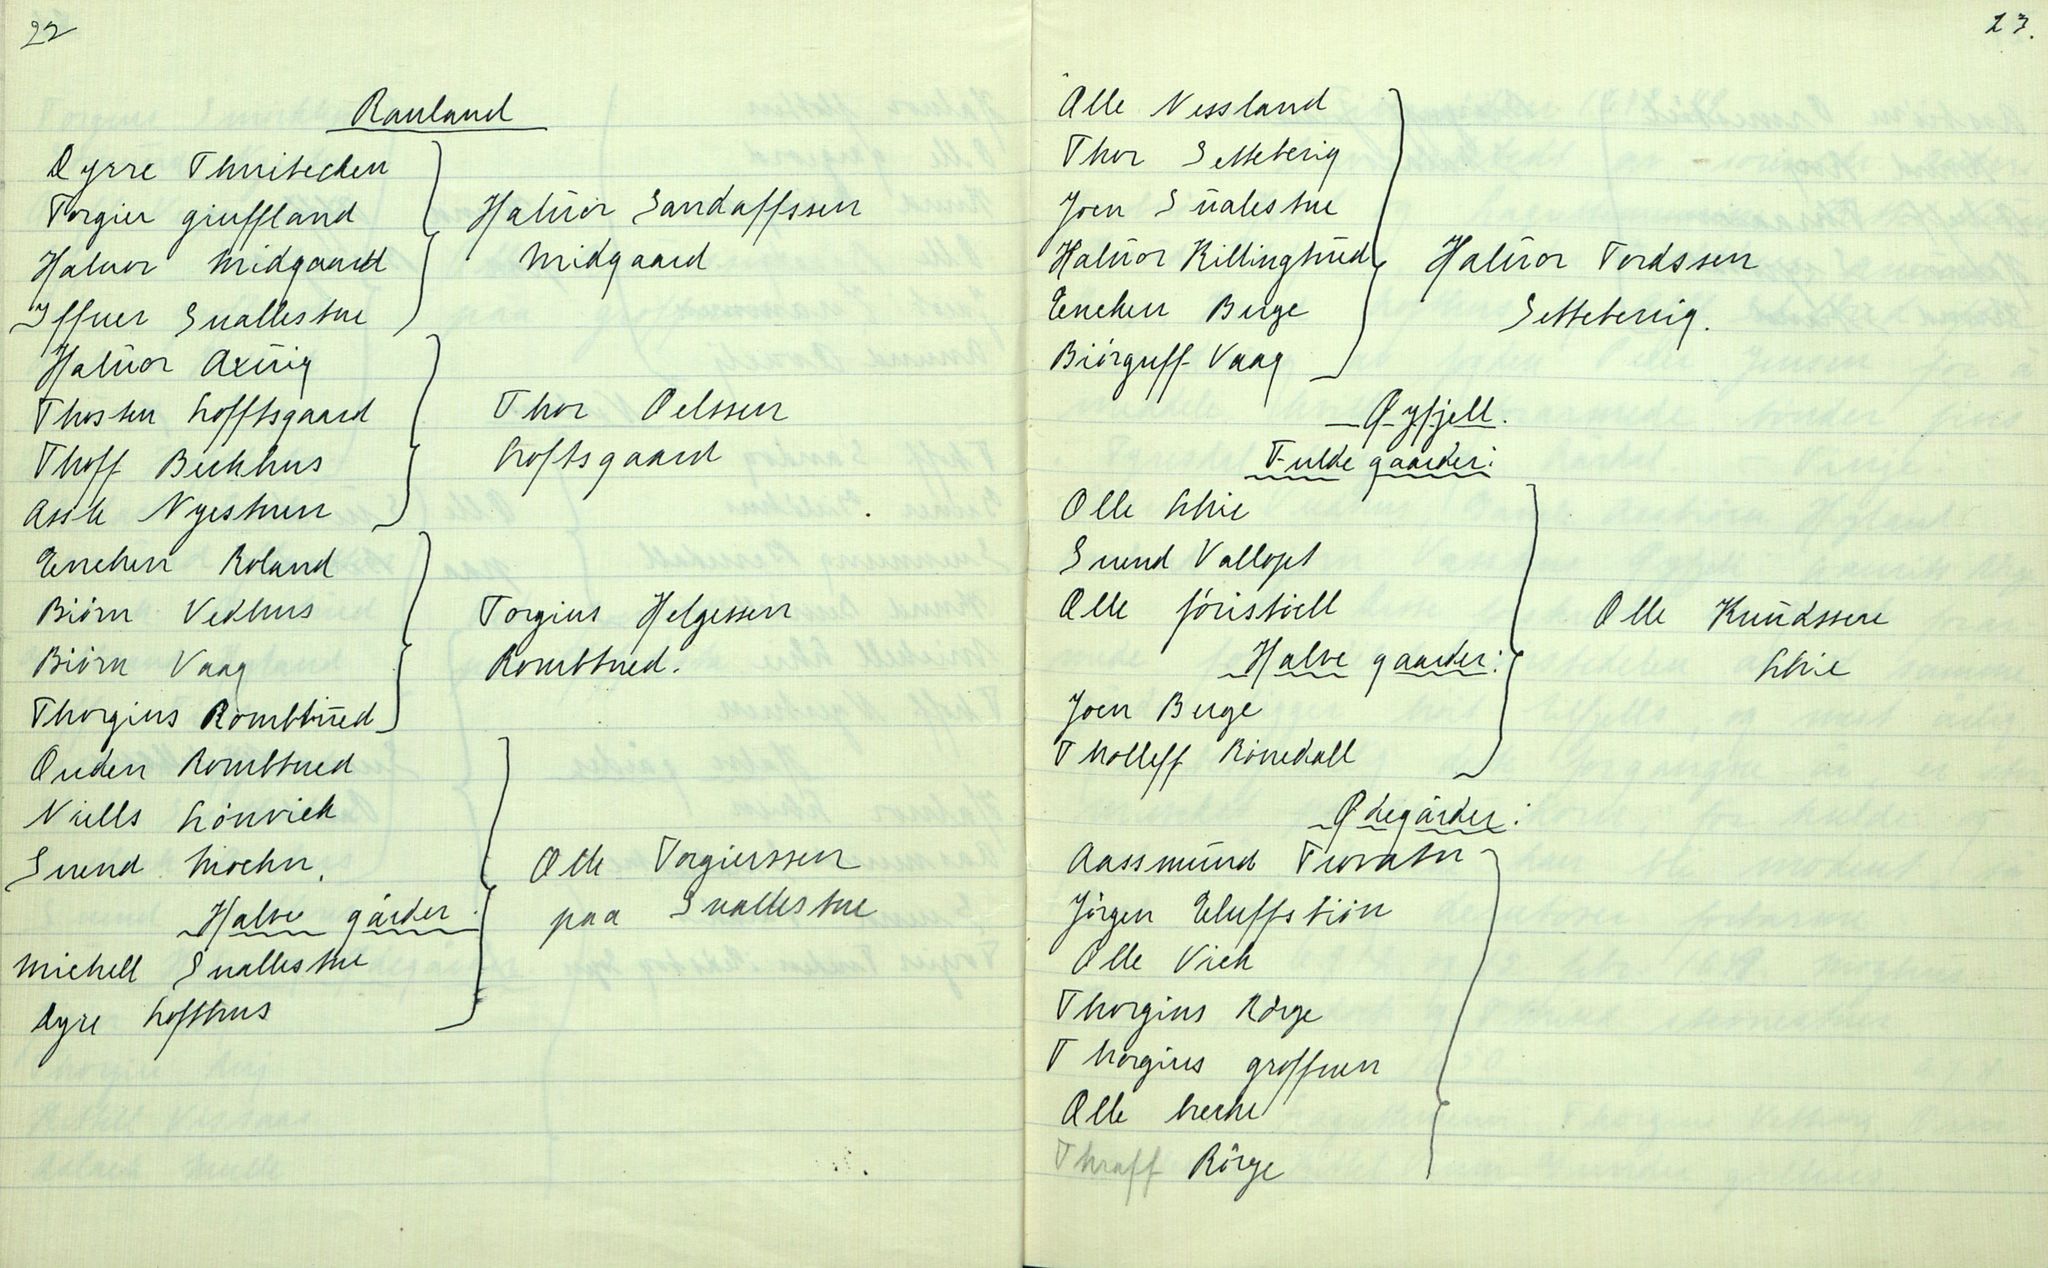 22
Rauland
Dyrre Thuitecken
Torgier giuffland
Haluor Midgaard
Iffuer Suallestue
Haluor Sandaffssen
Midgaard
Haluor Axurig
Thosten Lofftsgaard
Thoff Beckhus
Assle Nyestuen
Thor Oelssen
Loftsgaard
Enchen Roland
Biørn Vedhus
Biørn Vaag
Thorgius Rombtued
Torgius Helgessen
Rombtued.
Ouden Rombtued
Niells Lønvick
Suend Moehn.
Halve gårder.
Michell Suallestue
Dyre Lofthus
Olle Torgierssen
paa Suallestue
23.
Olle Nessland
Thor Setteberig
Joen Sualestue
Haluor Killingtued
Enchen Berge
Biórguff Vaag
Haluor Tordssen
Setteberig.
Øyfjell.
Fulde gaarder:
Olle Lhie
Suend Vallopt
Olle Jóristóell
Halve gaarder:
Joen Berge
Tholleff Rónedall
Olle Knudssene
Lhie
Ødegårder:
Aassmund Trovatn
Jórgen Eluffstión
Olle Vick
Thorgius Rórge
Thorgius groffuen
Olle
Thraff Rórge